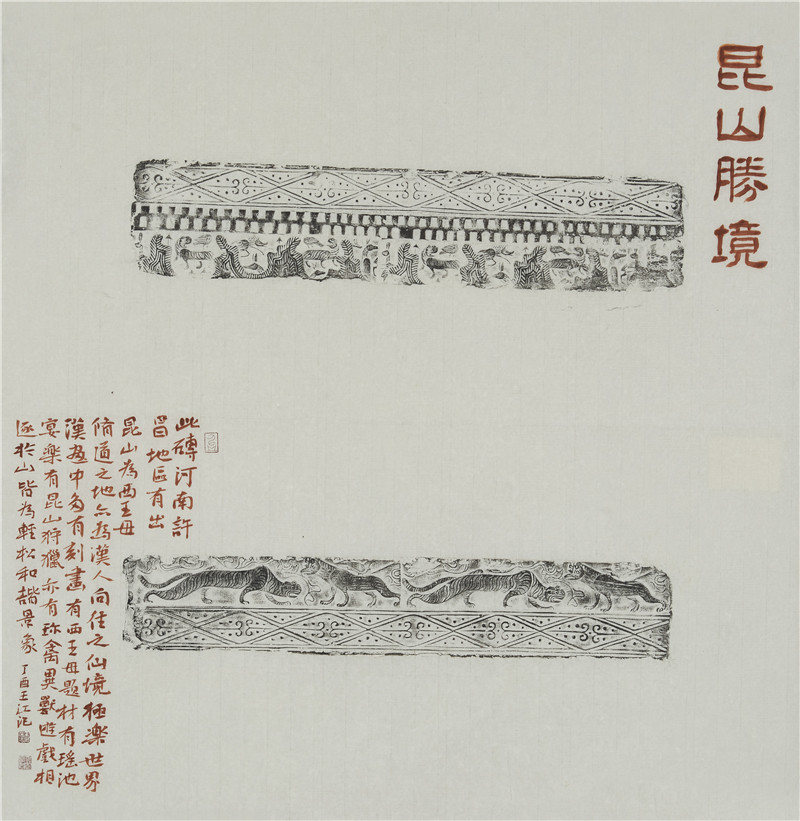 昆山勝境
此磚河南許
昌地區有出
昆山為西王母
脩道之地亦為漢人向往之仙境極樂世界
漢畫中多有刻畫有西王母題材有瑤池
宴樂有昆山狩獵亦有珎禽異獸遊戲相
逐於山皆為輕松和諧景象丁酉王江记